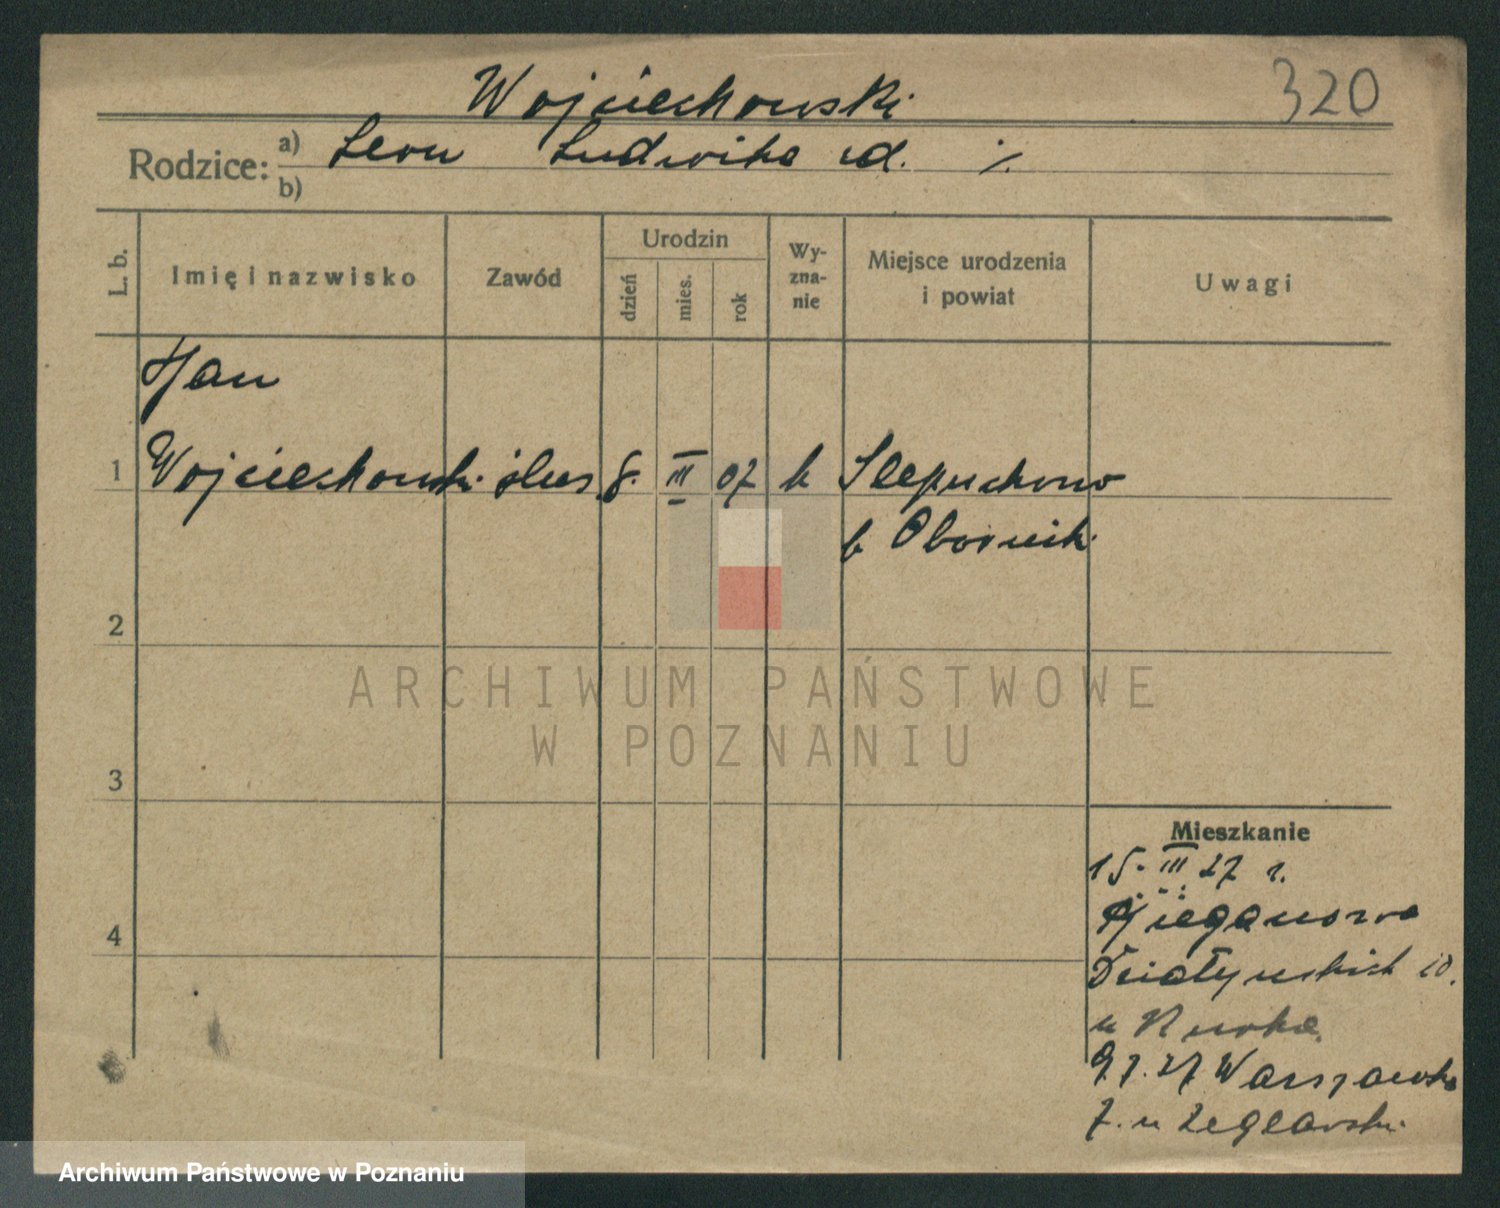 Wojciechowski
320
Rodzice: a) Leon Ludwika
b)
L. b. Imię i nazwisko Zawód Urodzin dzień mies. rok Wy-zna-nie Miejsce urodzenia i powiat Uwagi
Jan
1 Wojciechowski ślus. 8. III 07 k Slepuchowo
p. Obornik
2
ARCHIWUM PAŃSTWOWE
W POZNANIU
3
Mieszkanie
15. III 27 r.
4
Działyńskich 10.
u
9.7.27 Warszawska
7. u Żeglarski
Archiwum Państwowe w Poznaniu